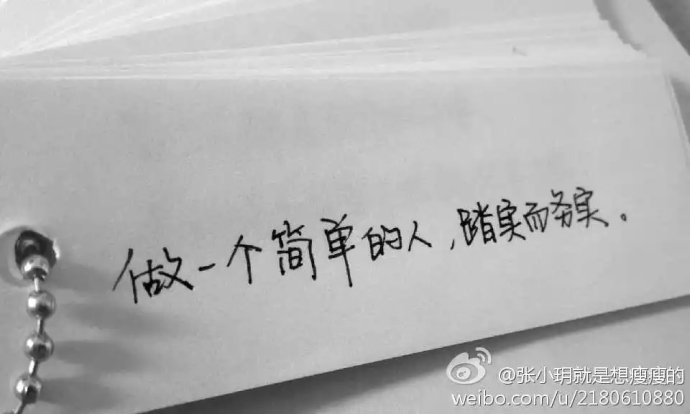 做一个简单的人，踏实而务实。
@张小玥就是想瘦瘦的
weibo.com/u/2180610880